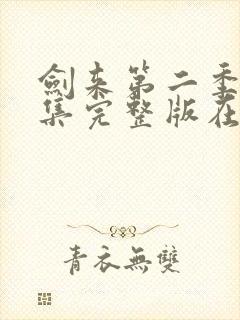 劍来第二季
集完整版在
青衣無雙